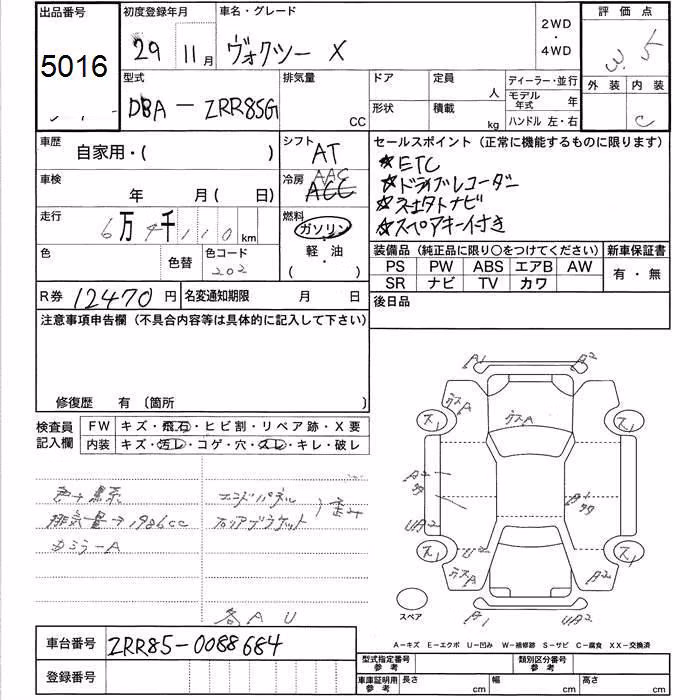 出品番号 5016
初度登録年月 29 11月
車名・グレード ヴォクシー X
2WD
・
4WD
評価点 3.5
外装 内装 C
型式 DBA-ZRR85G
排気量 CC
ドア
定員 人
形状
積載 kg
ディーラー・並行
モデル年式 年
ハンドル 左・右
車歴 自家用・( )
シフト AT
車検 年 月( 日)
冷房 AAC
走行 6万4千110km
燃料 ガソリン
・
軽・油
( )
色
色替
色コード 202
R券 12470円
名変通知期限 月 日
セールスポイント (正常に機能するものに限ります)
☆ETC
☆ドライブレコーダー
☆社外ナビ
☆スペアキー付き
装備品 (純正品に限り○をつけてください)
PS PW ABS エアB AW
SR ナビ TV カワ
新車保証書
有・無
後日品
注意事項申告欄 (不具合内容等は具体的に記入して下さい)
修復歴 有 〔箇所 〕
検査員記入欄
FW キズ・飛石・ヒビ割・リペア跡・X要
内装 キズ・汚レ・コゲ・穴・スレ・キレ・破レ
色→黒系
排気量→1986cc
カミラーA
エンドパネル
フロアブラケット
歪み
各AU
A1 A2
ガスA
ガスA
ス1 ス1
A2
タ
A1
タタ
UA2
ス1 ス1
U2
ガスA
A2
A1 UA2
スペア
A−キズ E−エクボ U−凹み W−補修跡 S−サビ C−腐食 XX−交換済
車台番号 ZRR85-0088684
登録番号
型式指定番号 参考
類別区分番号 参考
車庫証明用 参考 長さ cm 幅 cm 高さ cm